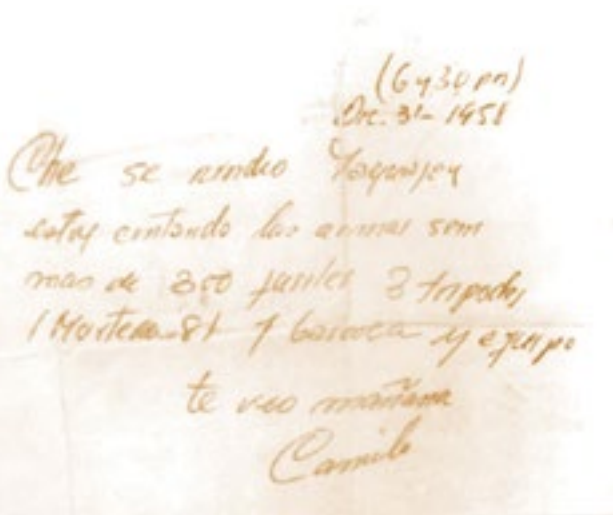 (6 y 30 pm)
Dic. 31- 1958
Che se rindio Yaguajay
estoy contando las armas son
mas de 350 fusiles 3 tripodes
1 Mortero 81 1 bazooca y
te veo mañana
Camilo